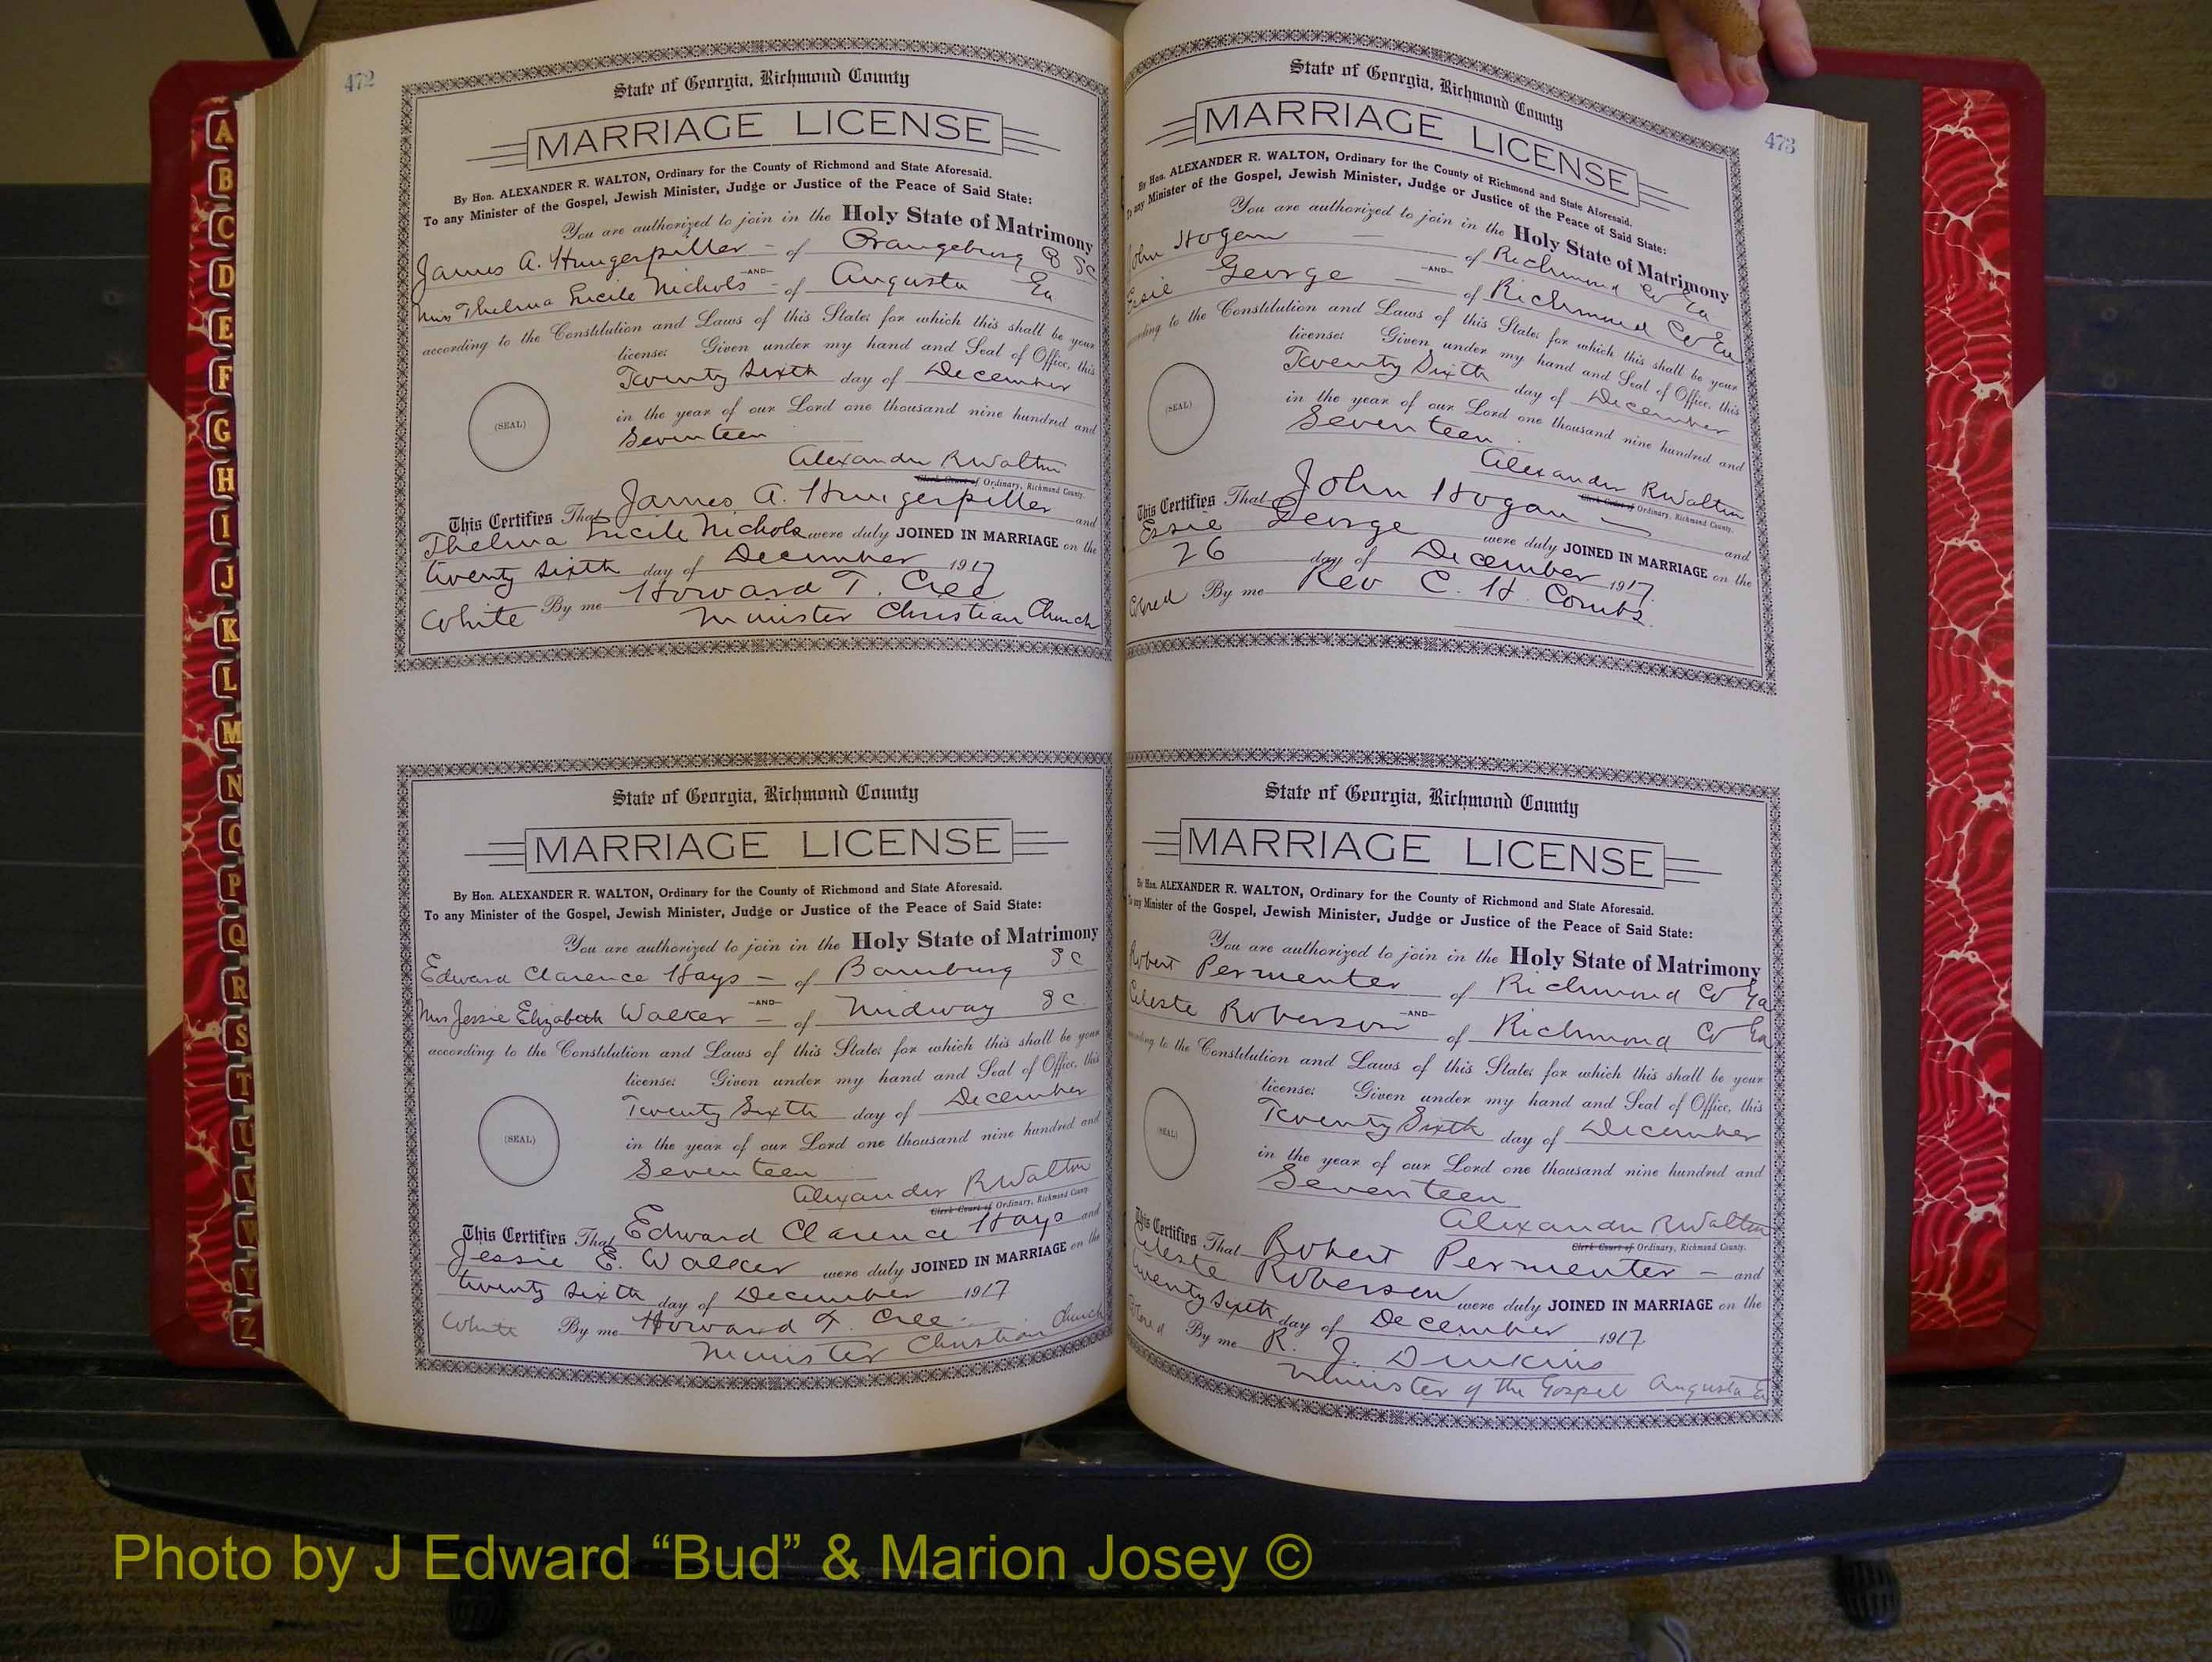 472
State of Georgia, Richmond County
MARRIAGE LICENSE
By Hon. ALEXANDER R. WALTON, Ordinary for the County of Richmond and State Aforesaid.
To any Minister of the Gospel, Jewish Minister, Judge or Justice of the Peace of Said State:
You are authorized to join in the Holy State of Matrimony
James A. Hungerpiller - of Orangeburg SC
-AND-
Miss Thelma Lucile Nichols - of Augusta Ga
according to the Constitution and Laws of this State; for which this shall be your
license: Given under my hand and Seal of Office, this
Twenty Sixth day of December
in the year of our Lord one thousand nine hundred and
Seventeen
(SEAL)
Alexander R Walton
Clerk Court of Ordinary, Richmond County.
This Certifies That James A. Hungerpiller and
Thelma Lucile Nichols were duly JOINED IN MARRIAGE on the
twenty sixth day of December 1917
White By me Howard T. Cree
Minister Christian Church
State of Georgia, Richmond County
MARRIAGE LICENSE
By Hon. ALEXANDER R. WALTON, Ordinary for the County of Richmond and State Aforesaid.
To any Minister of the Gospel, Jewish Minister, Judge or Justice of the Peace of Said State:
You are authorized to join in the Holy State of Matrimony
Edward Clarence Hays - of Bamburg SC
-AND-
Jessie Elizabeth Walker - of Midway SC.
according to the Constitution and Laws of this State; for which this shall be your
license: Given under my hand and Seal of Office, this
Twenty Sixth day of December
in the year of our Lord one thousand nine hundred and
Seventeen
(SEAL)
Alexander R Walton
Clerk Court of Ordinary, Richmond County.
This Certifies That Edward Clarence Hays and
Jessie E. Walker were duly JOINED IN MARRIAGE on the
twenty sixth day of December 1917
White By me Howard T. Cree
Minister Christian Church
473
State of Georgia, Richmond County
MARRIAGE LICENSE
By Hon. ALEXANDER R. WALTON, Ordinary for the County of Richmond and State Aforesaid.
To any Minister of the Gospel, Jewish Minister, Judge or Justice of the Peace of Said State:
You are authorized to join in the Holy State of Matrimony
John Hogan of Richmond Co Ga
-AND-
Essie George of Richmond Co Ga
according to the Constitution and Laws of this State; for which this shall be your
license: Given under my hand and Seal of Office, this
Twenty Sixth day of December
in the year of our Lord one thousand nine hundred and
Seventeen
(SEAL)
Alexander R Walton
Clerk Court of Ordinary, Richmond County.
This Certifies That John Hogan and
Essie George were duly JOINED IN MARRIAGE on the
26 day of December 1917.
Colored By me Rev C. H. Combs.
State of Georgia, Richmond County
MARRIAGE LICENSE
By Hon. ALEXANDER R. WALTON, Ordinary for the County of Richmond and State Aforesaid.
To any Minister of the Gospel, Jewish Minister, Judge or Justice of the Peace of Said State:
You are authorized to join in the Holy State of Matrimony
Robert Permenter of Richmond Co Ga
-AND-
Celeste Roberson of Richmond Co Ga
according to the Constitution and Laws of this State; for which this shall be your
license: Given under my hand and Seal of Office, this
Twenty Sixth day of December
in the year of our Lord one thousand nine hundred and
Seventeen
(SEAL)
Alexander R Walton
Clerk Court of Ordinary, Richmond County.
This Certifies That Robert Permenter - and
Celeste Roberson were duly JOINED IN MARRIAGE on the
twenty sixth day of December 1917
Colored By me R. J. Dunkins
Minister of the Gospel Augusta Ga
A
B
C
D
E
F
G
H
I
J
K
L
M
N
O
P
Q
R
S
T
U
V
W
Y
Z
Photo by J Edward “Bud” & Marion Josey ©